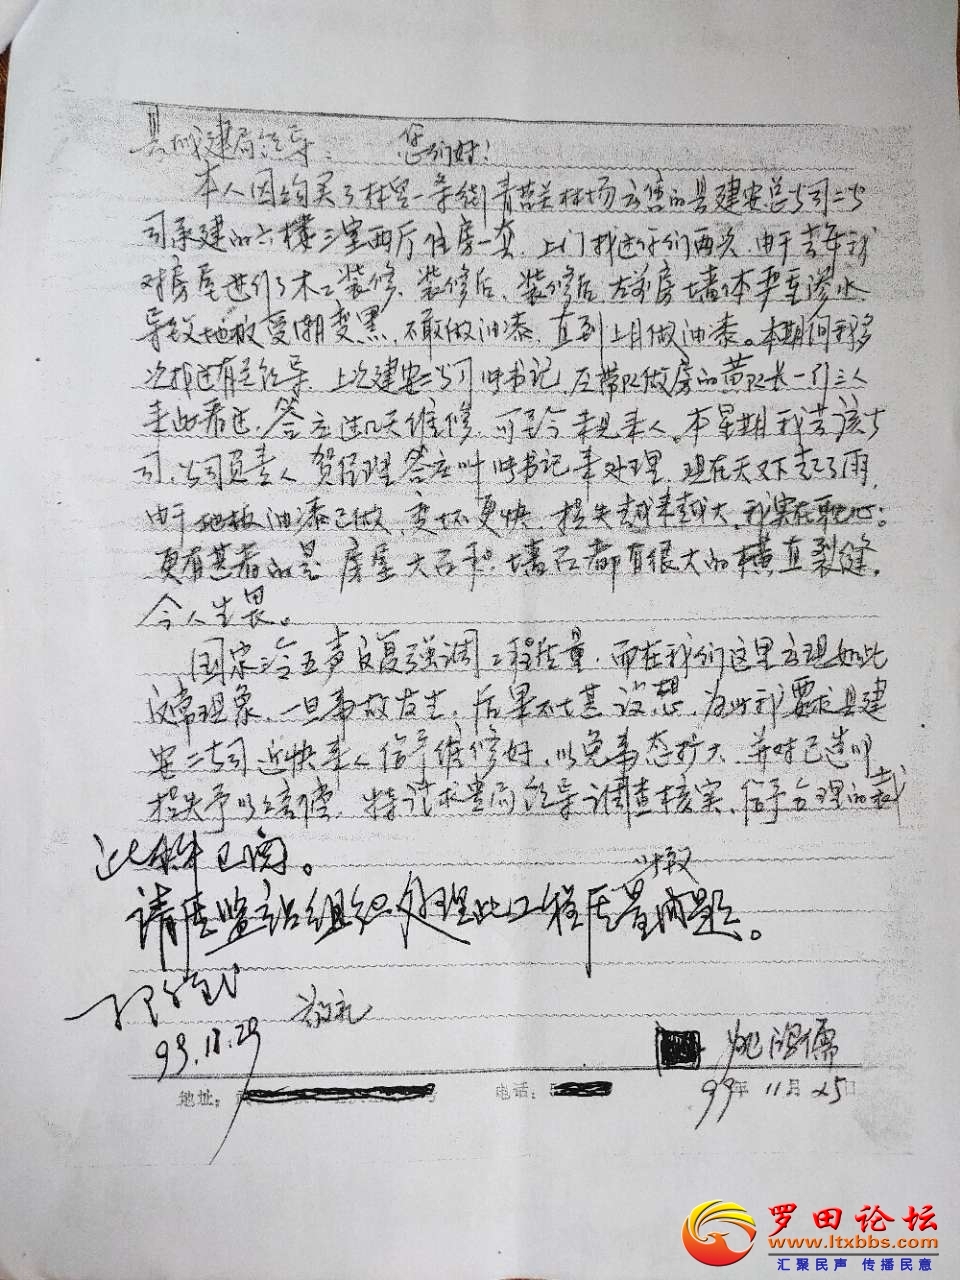 县城建局领导： 您们好！
本人因购买了林贸一条街青苔关林场出售的县建安总公司二公
司承建的六楼三室两厅住房一套，上门找过你们两次，由于去年我
对房屋进行了木工装修，装修后，装修后左前房墙体严重渗水，
导致地板受潮变黑，不敢做油漆，直到上月做油漆。本期间我多
次找过有关领导，上次建安二公司 书记，及带队做房的黄队长一行三人
来此看过，答应过几天维修，可至今未见来人。本星期我去该公
司，公司负责人贺经理答应叫 书记来处理，现在天又下起了雨，
由于地板油漆已做，变坏更快，损失越来越大，我实在 心。
更有甚者的是房屋大石 墙 都有很大的横直裂缝，
令人生畏。
国家三令五声反复强调工程质量，而在我们这里出现如此
反常现象，一旦事故发生，后果不堪设想，为此我要求县建
安二公司近快来人给予维修好，以免事态扩大，并对已造成
损失予以赔偿，特请求贵局领导调查核实，给予合理的裁
此件已阅。
请质监站组织处理此工程质量问题。
93.11.29
敬礼
姚 儒
地址： 电话：
99年11月25日
罗田论坛
www.ltxbbs.com
汇聚民声 传播民意